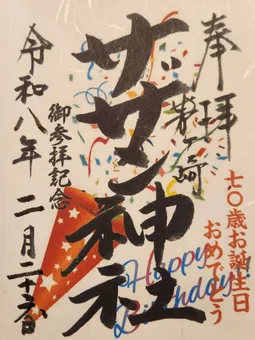 奉拝
茅ヶ崎
七〇歳お誕生日
おめでとう
サザン神社
Happy
Birthday!
御参拝記念
令和八年 二月二十六日